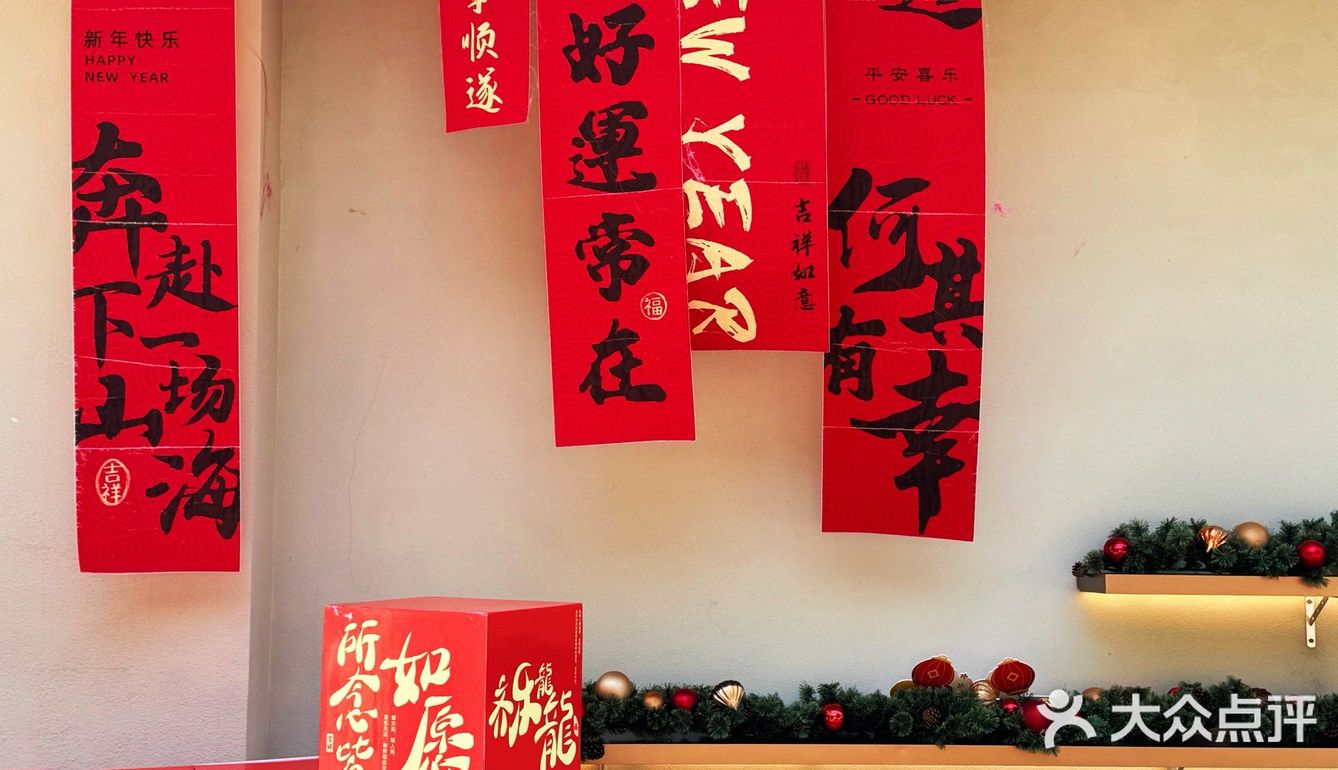 新年快乐
HAPPY
NEW YEAR
奔赴
下一场
山海
吉祥
顺遂
好運常在
福
EW YEAR
吉祥如意
平安喜乐
GOOD LUCK
何其有幸
所念皆
如愿
龍龍
大众点评